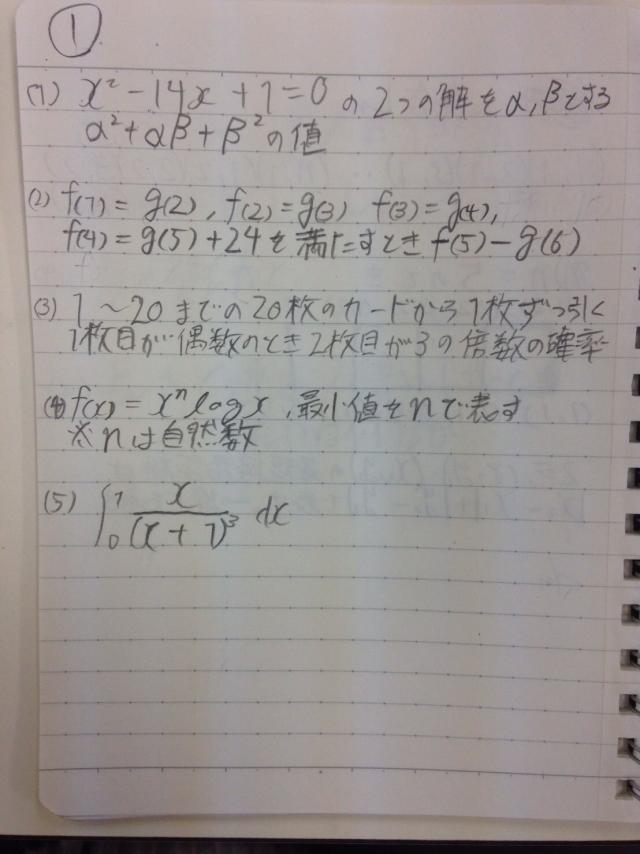 ①
(1) x² - 14x + 1 = 0 の2つの解をα,βとする
α² + αβ + β² の値
(2) f(1) = g(2), f(2) = g(3) f(3) = g(4),
f(4) = g(5) + 24 を満たすとき f(5) - g(6)
(3) 1〜20までの20枚のカードから1枚ずつ引く
1枚目が偶数のとき2枚目が3の倍数の確率
(4) f(x) = xⁿ log x , 最小値をnで表す
※ nは自然数
(5) ∫₀¹ x/(x + 1)³ dx